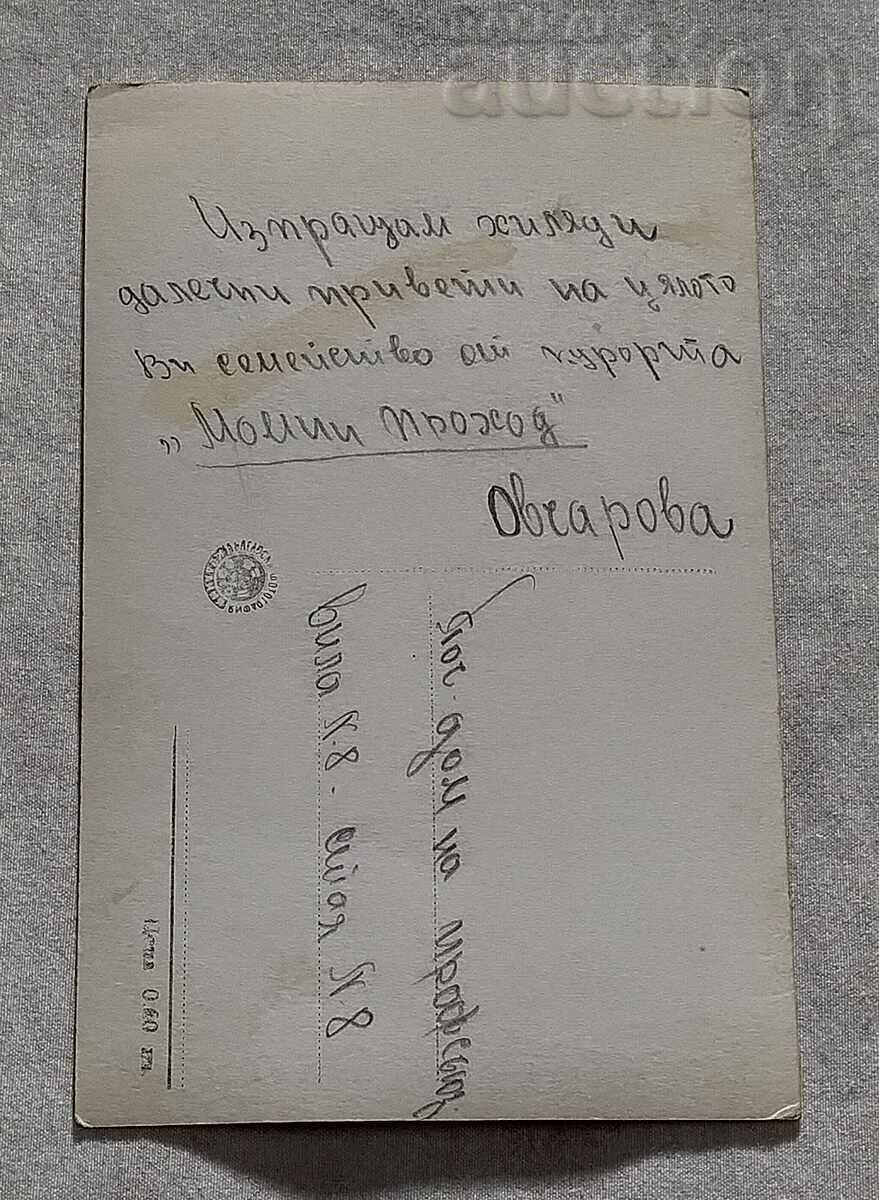 auction
Изпращам хиляди
далечни привети на цялото
Ви семейство от курорта
„Момин проход"
Овчарова
Поч. дом на профсъюз
вила N. 8 - стая N. 8
БЪЛГАРСКА ФОТОГРАФИЯ
Цена 0.60 лв.